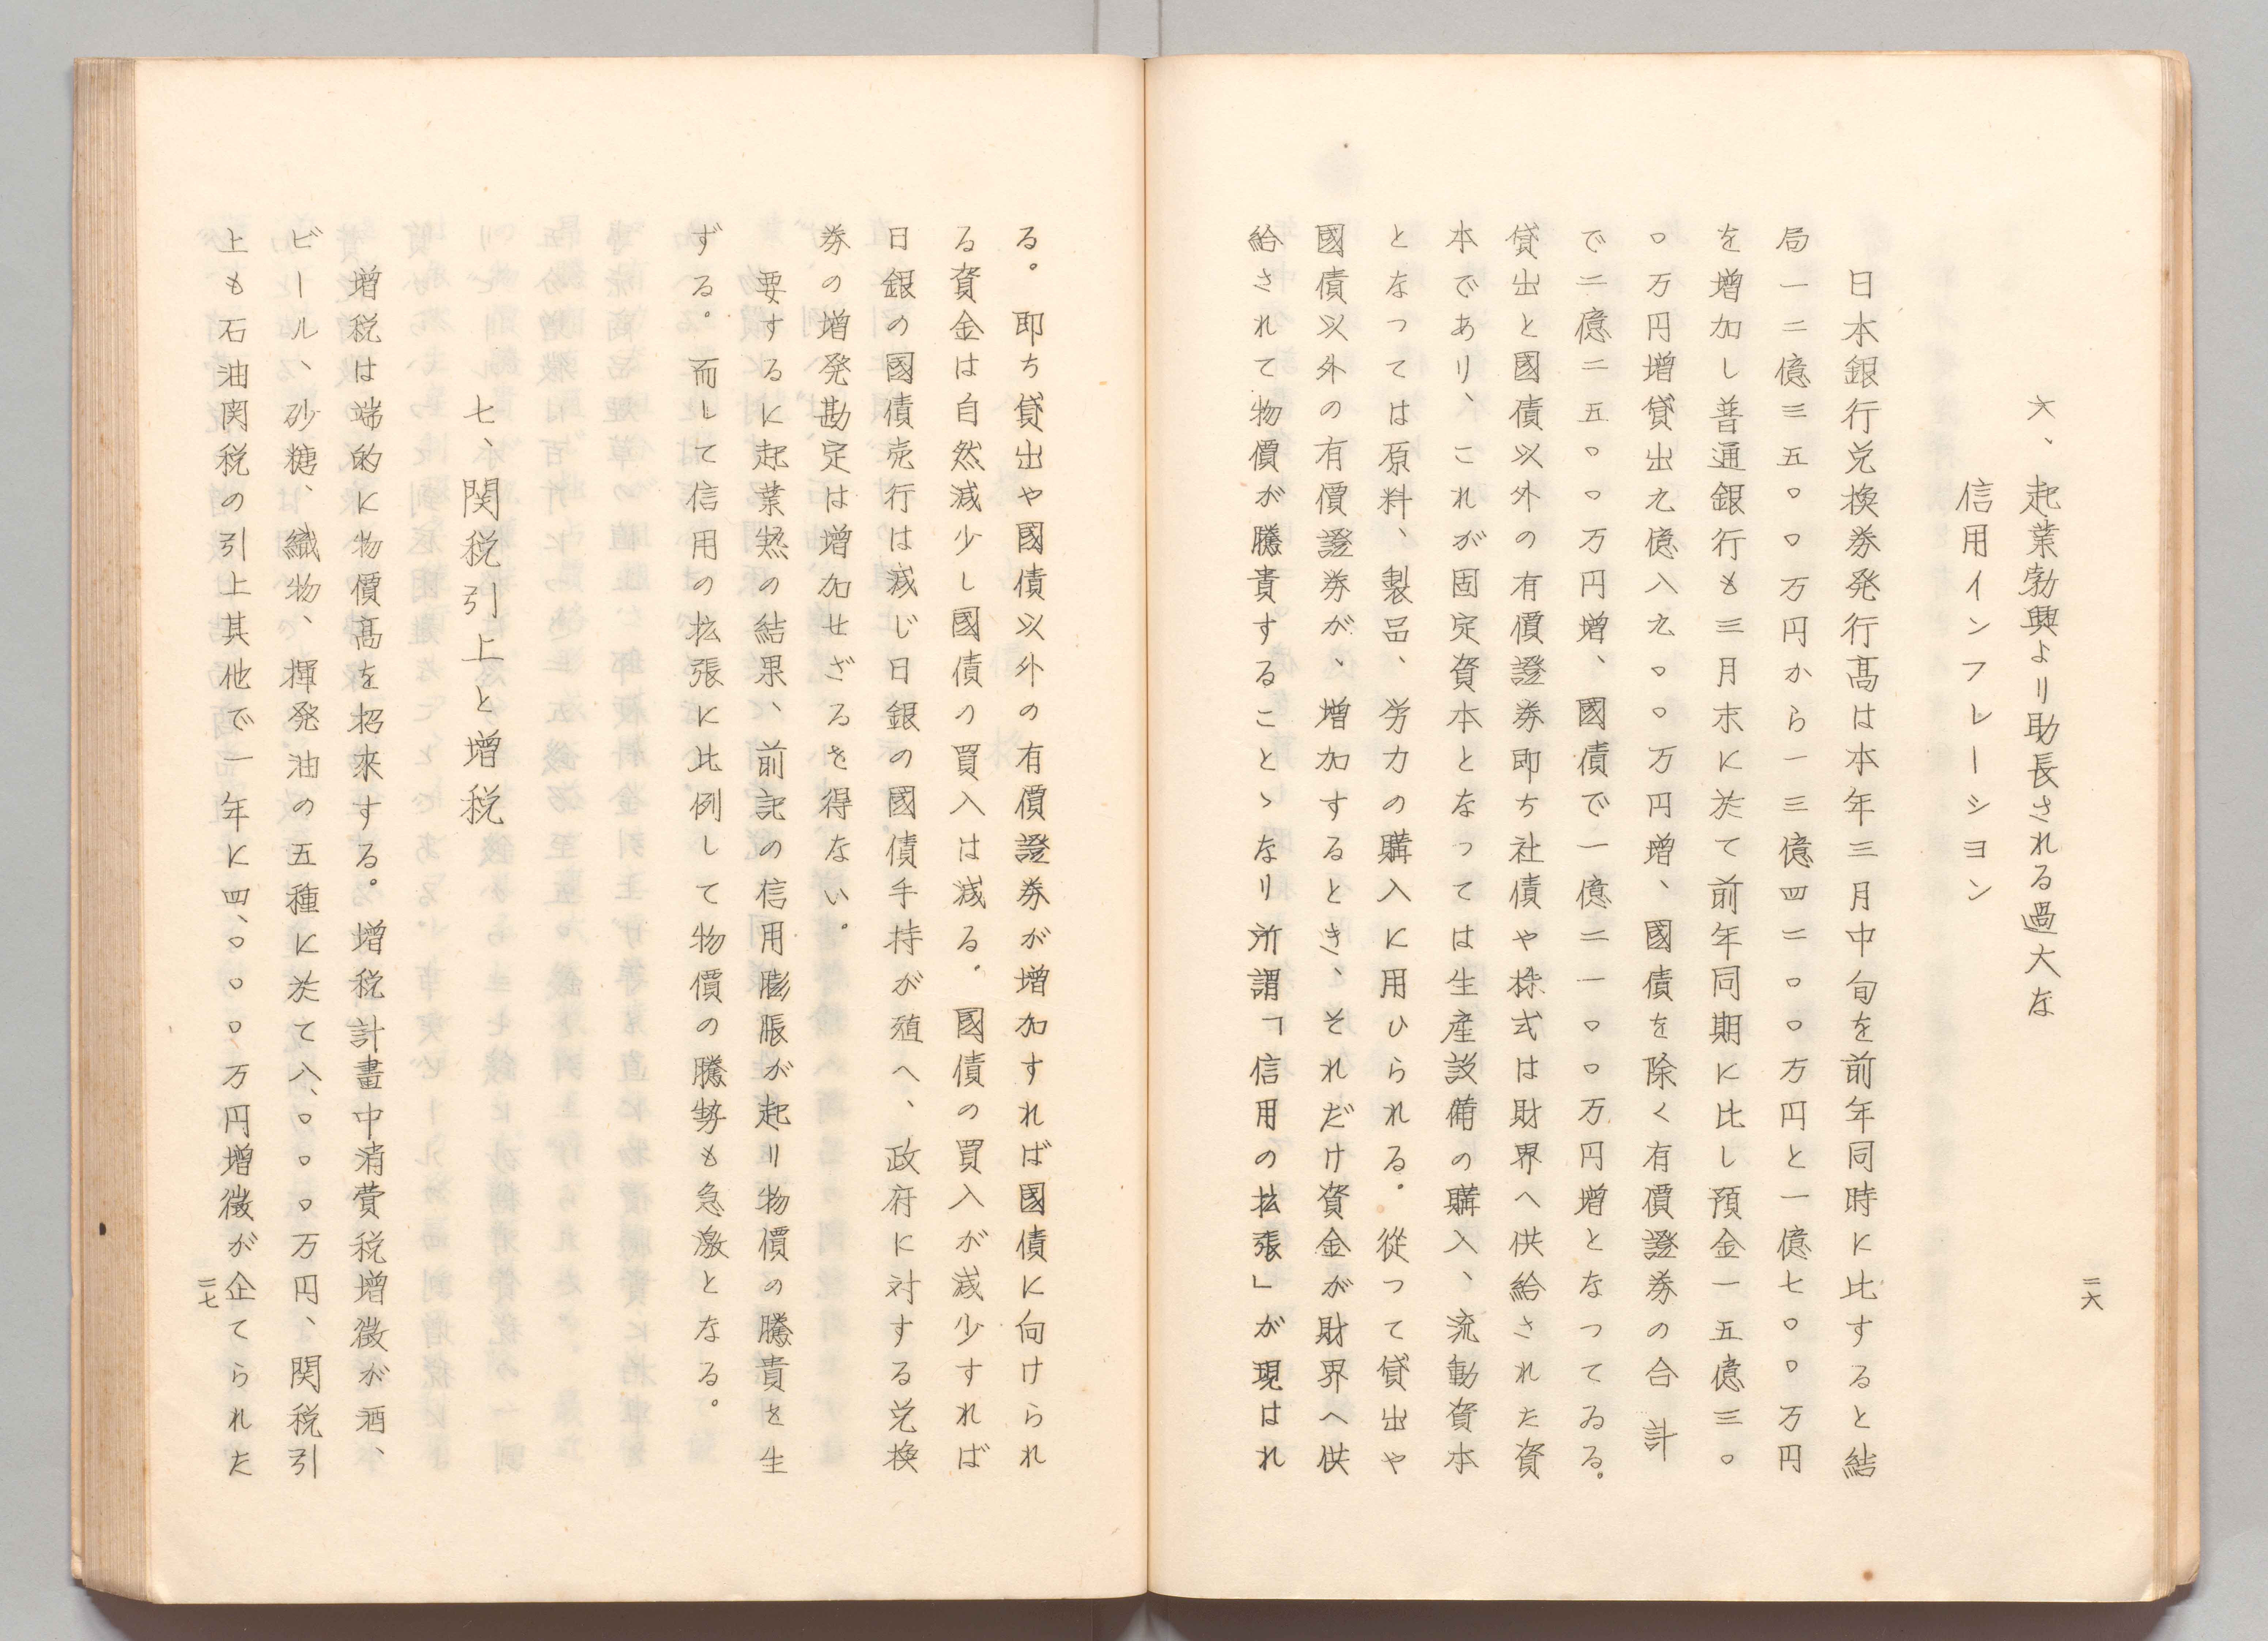 二六
六、起業勃興より助長される過大な
信用インフレーション
日本銀行兌換券発行高は本年三月中旬を前年同時に比すると結
局一二億三五〇〇万円から一三億四二〇〇万円と一億七〇〇万円
を増加し普通銀行も三月末に於て前年同期に比し預金一五億三〇
〇万円増貸出九億八九〇〇万円増、國債を除く有價證券の合計
で二億二五〇〇万円増、國債で一億二一〇〇万円増となつてゐる。
貸出と國債以外の有價證券即ち社債や株式は財界へ供給された資
本であり、これが固定資本となつては生産設備の購入、流動資本
となつては原料、製品、労力の購入に用ひられる。従つて貸出や
國債以外の有價證券が、増加するとき、それだけ資金が財界へ供
給されて物價が騰貴することゝなり所謂「信用の拡張」が現はれ
る。即ち貸出や國債以外の有價證券が増加すれば國債に向けられ
る資金は自然減少し國債の買入は減る。國債の買入が減少すれば
日銀の國債売行は減じ日銀の國債手持が殖へ、政府に対する兌換
券の増発勘定は増加せざるを得ない。
要するに起業熱の結果、前記の信用膨脹が起り物價の騰貴を生
ずる。而して信用の拡張に比例して物價の騰勢も急激となる。
七、関税引上と増税
増税は端的に物價高を招来する。増税計畫中消費税増徴が酒、
ビール、砂糖、織物、揮発油の五種に於て八、〇〇〇万円、関税引
上も石油関税の引上其他で一年に四、〇〇〇万円増徴が企てられた
二七